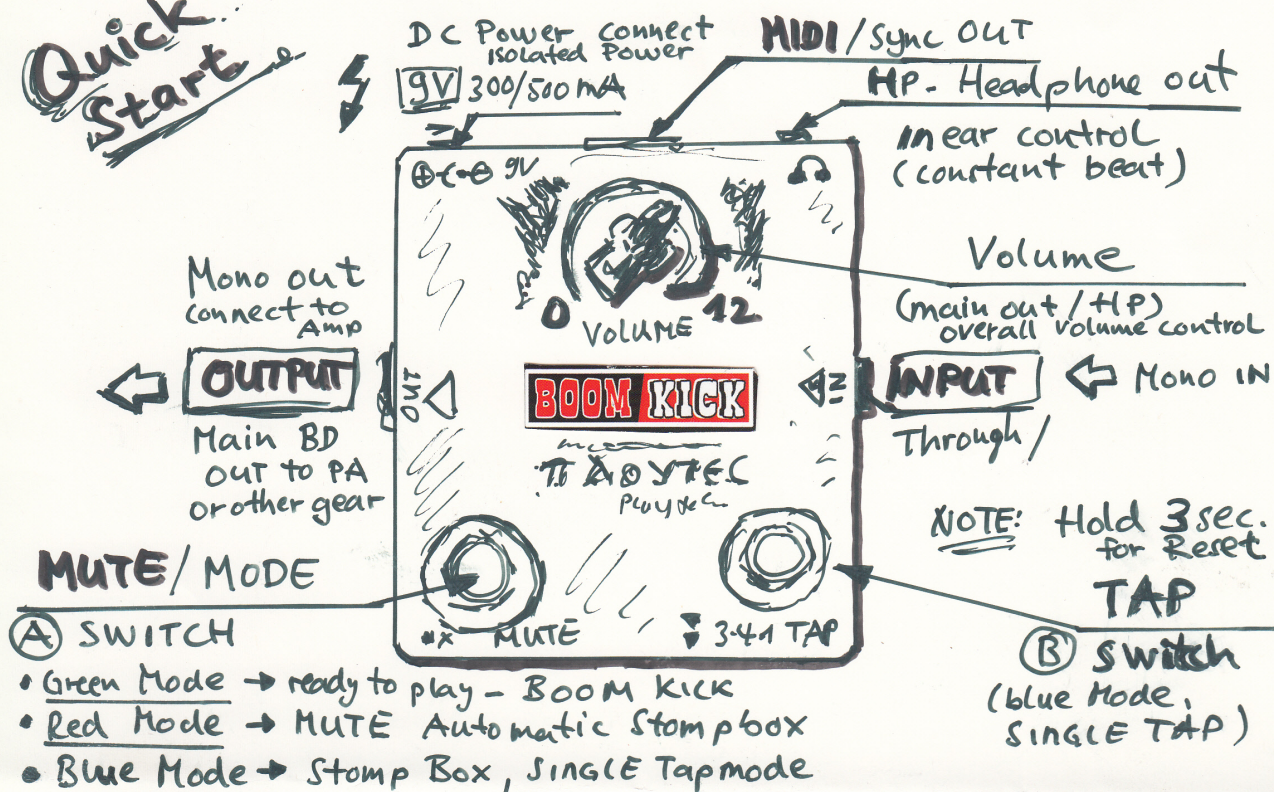 Quick
Start
DC Power connect
isolated Power
9V 300/500 mA
MIDI / Sync OUT
HP - Headphone out
in ear control
(constant beat)
9V
0
12
VOLUME
Volume
(main out / HP)
overall volume control
Mono out
connect to
Amp
OUTPUT
OUT
Main BD
OUT to PA
or other gear
BOOM KICK
IN
INPUT
Mono IN
Through /
NOTE: Hold 3 sec.
for Reset
MUTE / MODE
A SWITCH
MUTE
3-4-1 TAP
TAP
B Switch
(blue Mode,
SINGLE TAP)
• Green Mode → ready to play - BOOM KICK
• Red Mode → MUTE Automatic Stompbox
• Blue Mode → Stomp Box, SINGLE Tapmode